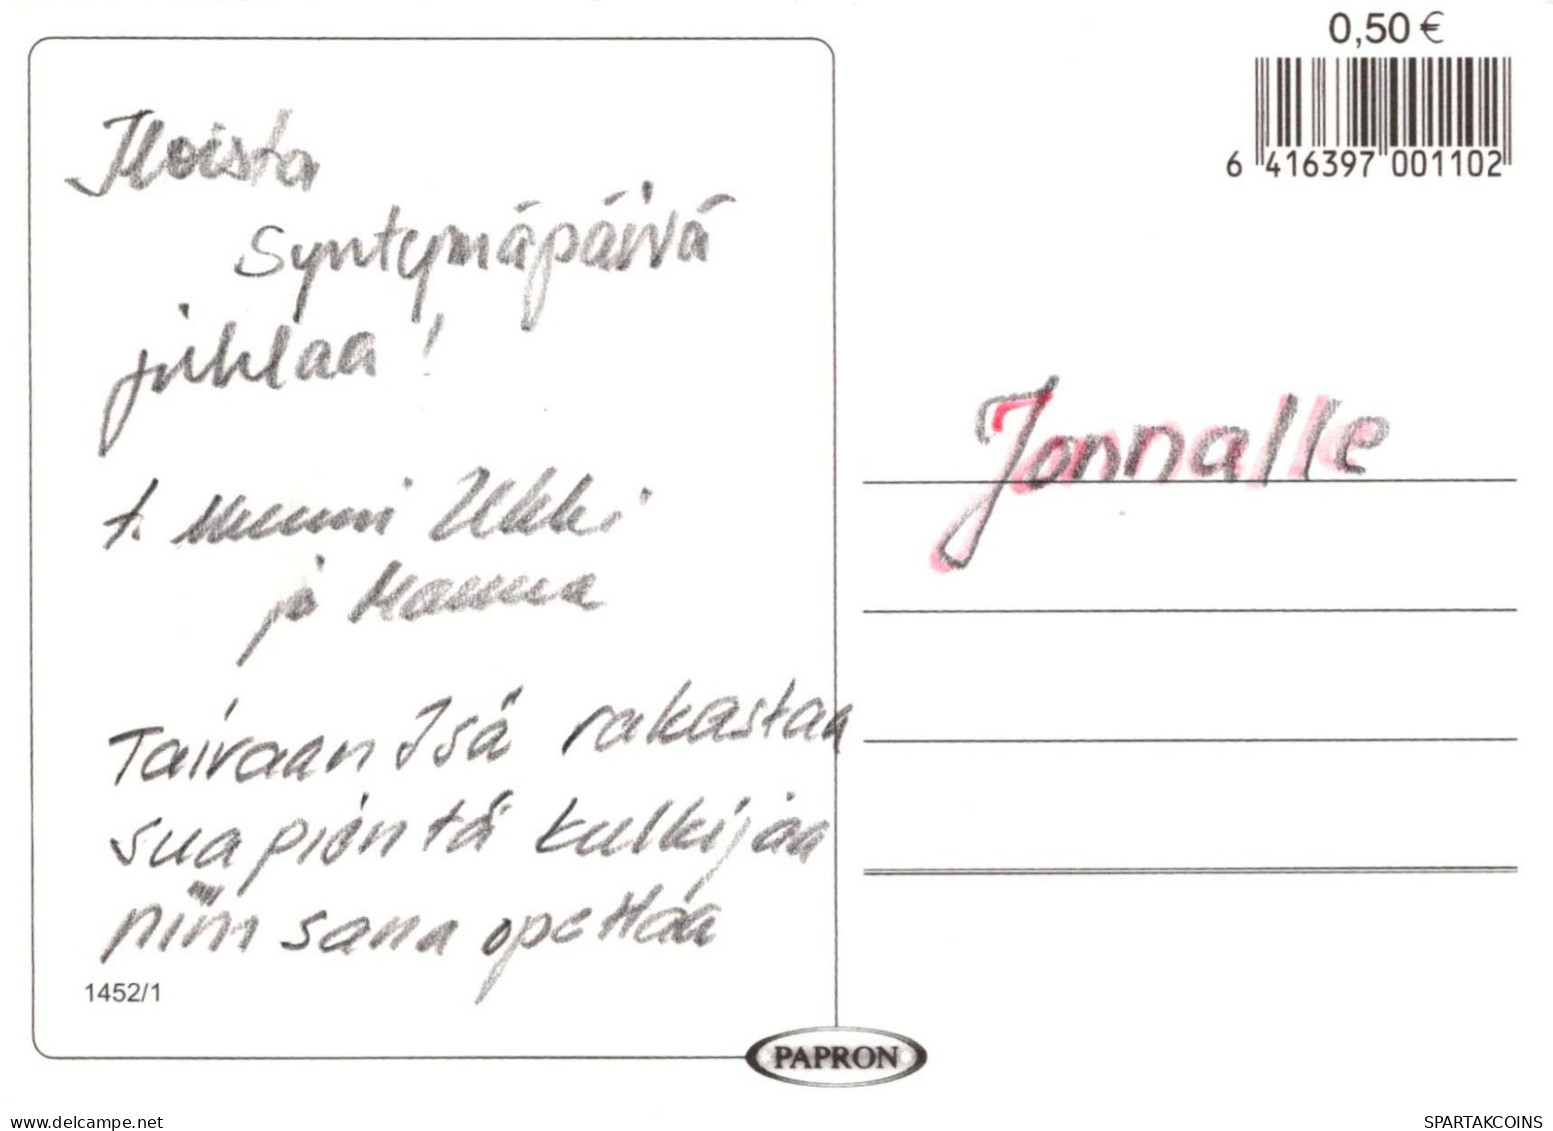 0,50 €
6 416397 001102
Iloista
Syntymäpäivä
juhlaa!
t. Mummi Ukki
ja Hanna
Jonnalle
Taivaan Isä rakastaa
sua pientä kulkijaa
niin sana opettaa
1452/1
PAPRON
delcampe.net
SPARTAKCOINS